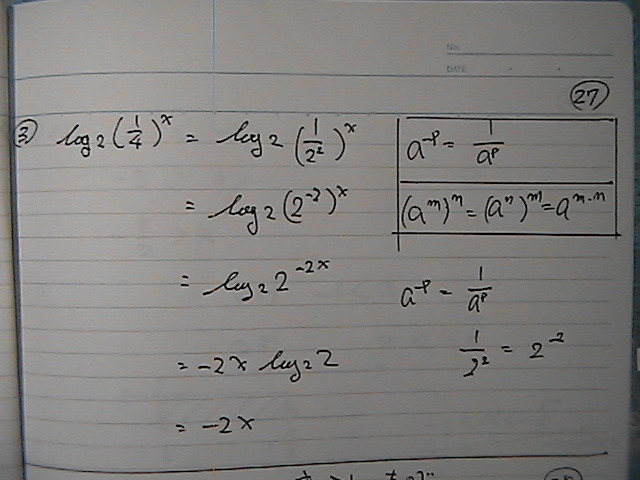 No.
DATE
27
③ log₂(1/4)ˣ = log₂(1/2²)ˣ
= log₂(2⁻²)ˣ
= log₂2⁻²ˣ
= -2x log₂2
= -2x
a⁻ᵖ = 1/aᵖ
(aᵐ)ⁿ = (aⁿ)ᵐ = aᵐ·ⁿ
a⁻ᵖ = 1/aᵖ
1/2² = 2⁻²